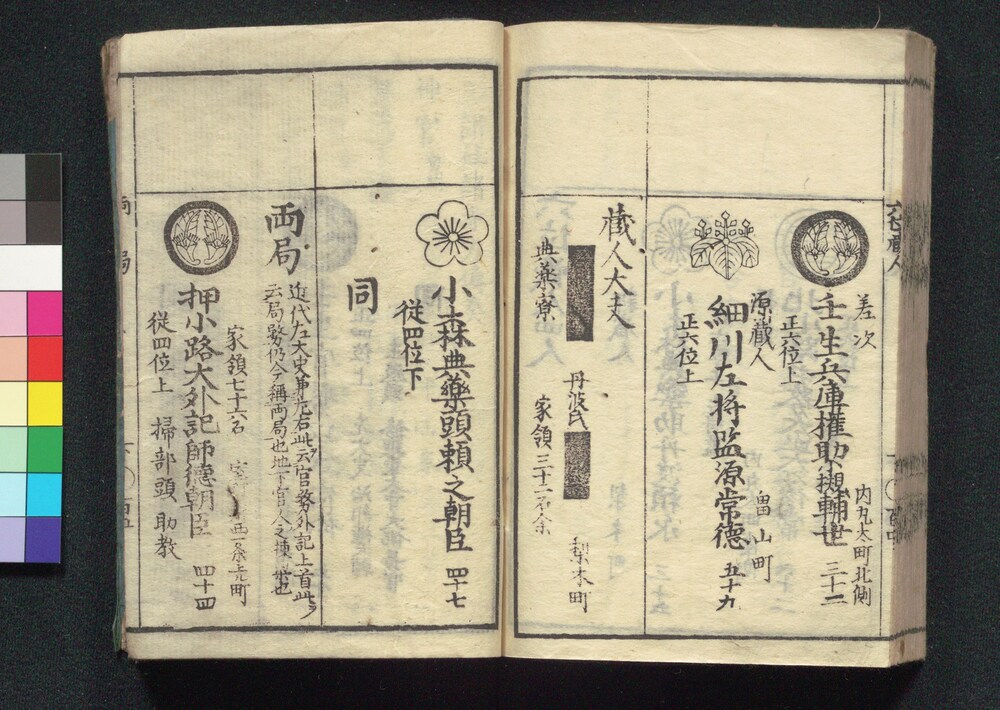 六位蔵人
差次
正六位上
壬生兵庫権助輔世 三十二
内丸太町北側
源蔵人
正六位上
細川左将監源常徳 五十九
畠山町
蔵人大夫
典薬寮
丹波氏
家領三十二石余
梨木町
小森典薬頭頼之朝臣 四十七
従四位下
同
両局
近代左大史第左右此ヲ云官務外記上首此ヲ
云局務仍今称両局也地下官人之棟梁也
家領七十六石
押小路大外記師徳朝臣 四十四
従四位上 掃部頭 助教
両局